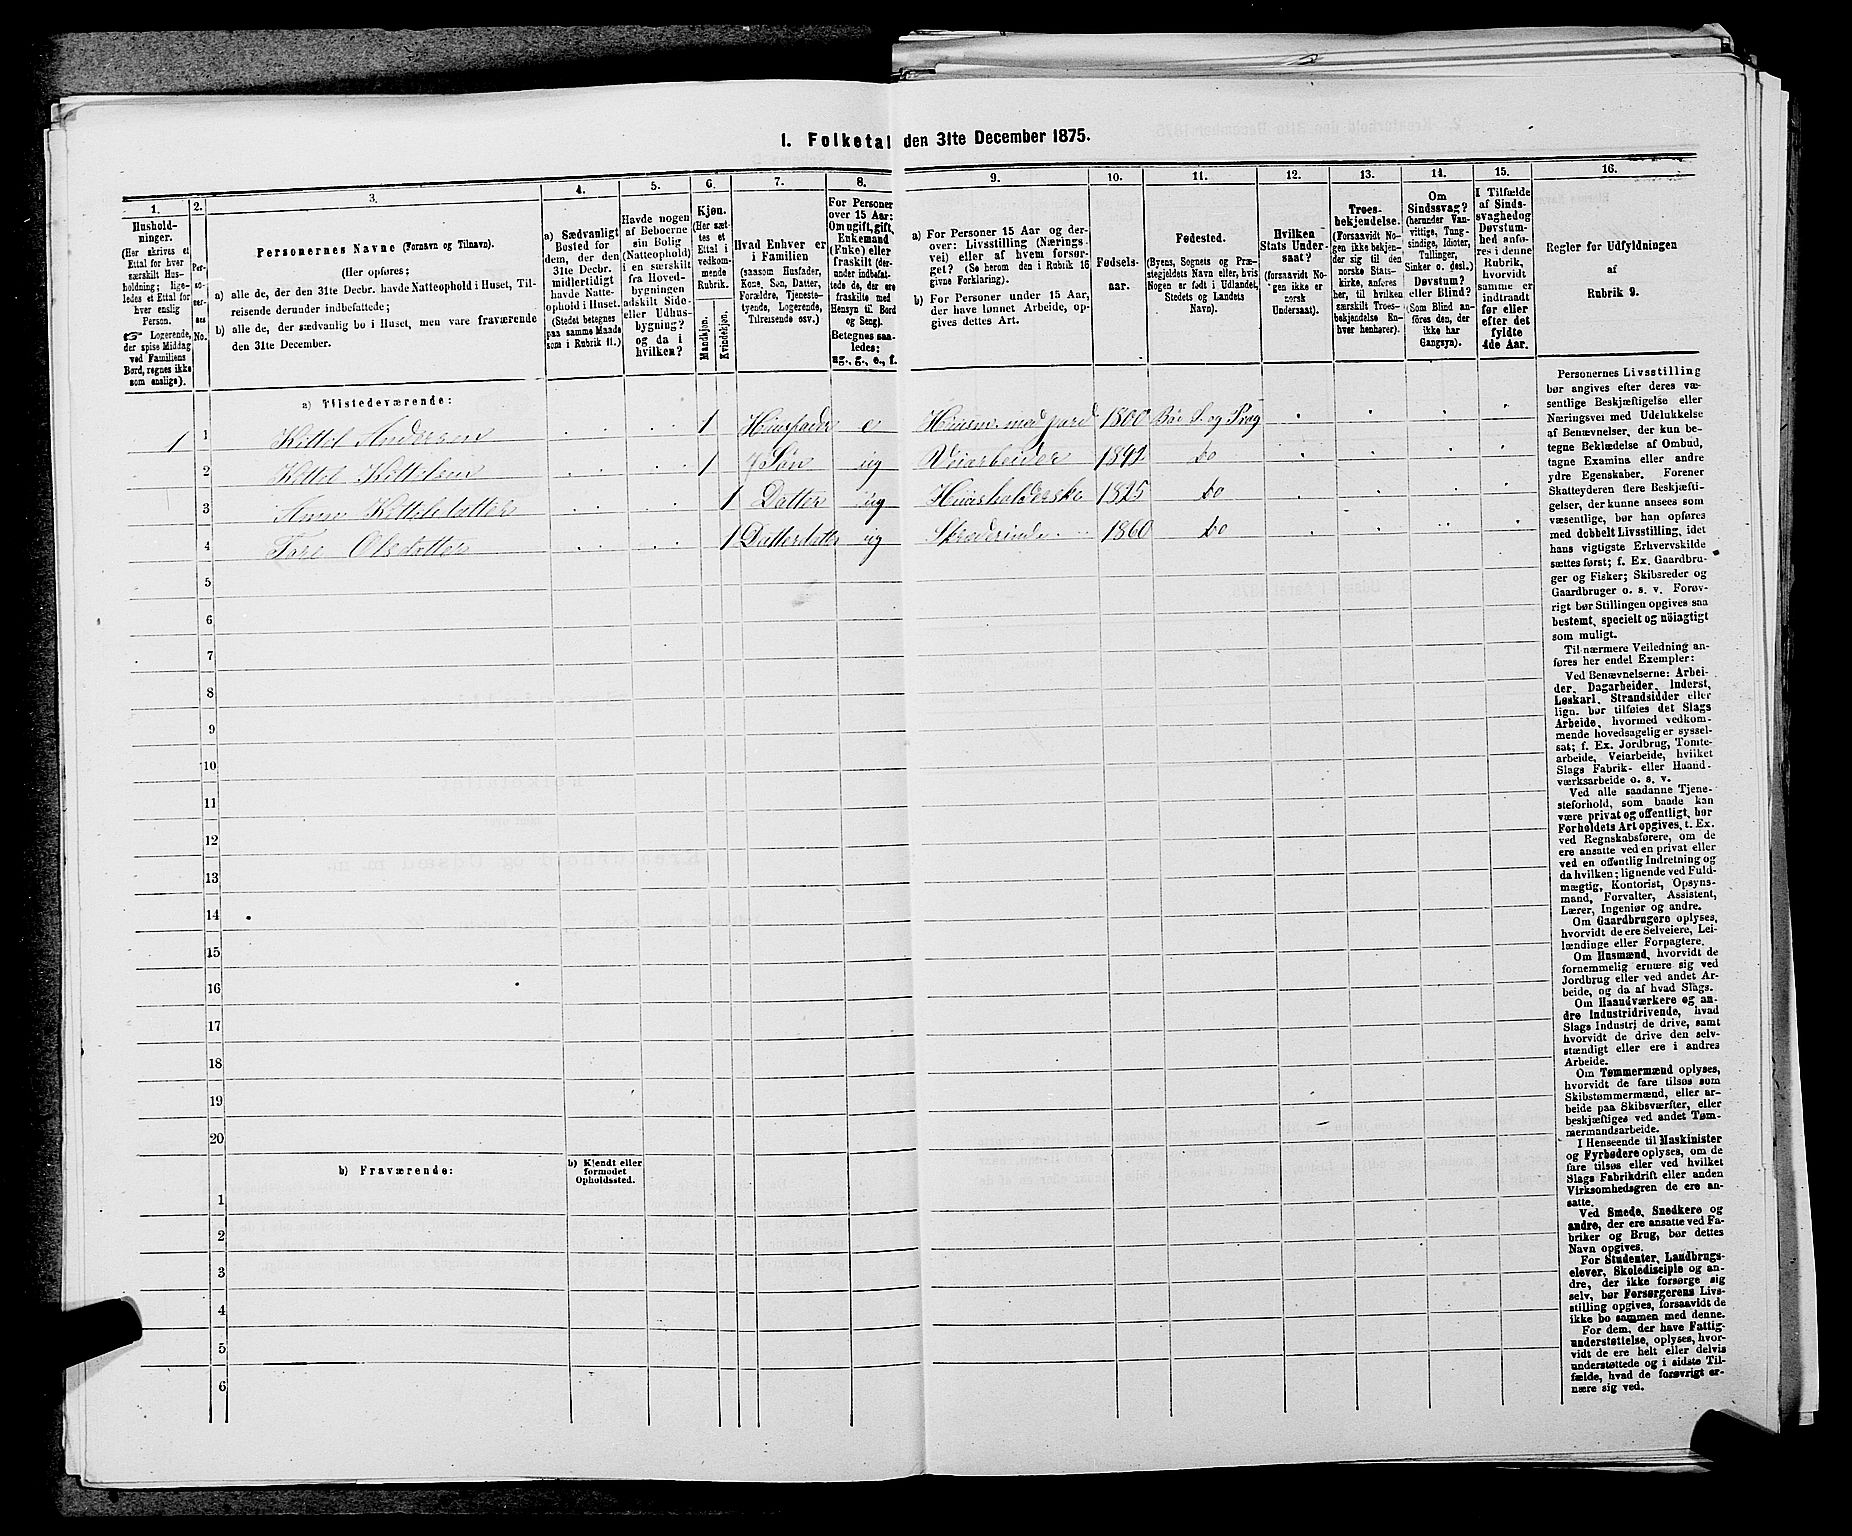 1. Folketal den 31te December 1875.
1.
Hushold-
ninger.
(Her skrives et
Ettal for hver
særskilt Hus-
holdning; lige-
ledes et Ettal for
hver enslig
Person.
☞ Logerende,
der spise Middag
ved Familiens
Bord, regnes ikke
som enslige).
2.
Per-
so-
ner-
nes
No.
3.
Personernes Navne (Fornavn og Tilnavn).
(Her opføres:
a) alle de, der den 31te Decbr. havde Natteophold i Huset, Til-
reisende derunder indbefattede;
b) alle de, der sædvanlig bo i Huset, men vare fraværende
den 31te December.
4.
a) Sædvanligt
Bosted for
dem, der den
31te Decbr.
midlertidigt
havde Natte-
ophold i Huset.
(Stedet betegnes
paa samme Maade
som i Rubrik 11.)
5.
Havde nogen
af Beboerne
sin Bolig
(Natteophold)
i en særskilt
fra Hoved-
bygningen
adskilt Side-
eller Udhus-
bygning?
og da i
hvilken?
6.
Kjøn.
(Her sæt-
tes et
Ettal i
vedkom-
mende
Rubrik.
Mandkjøn.
Kvindekjøn.
7.
Hvad Enhver er
i Familien
(saasom Husfader,
Kone, Søn, Datter,
Forældre, Tjeneste-
tyende, Logerende,
Tilreisende osv.)
8.
For Personer
over 15 Aar:
Om ugift, gift,
Enkemand
(Enke) eller
fraskilt (der-
under indbefat-
tede de, der ere
fraskilte med
Hensyn til Bord
og Seng).
Betegnes saa-
ledes:
ug., g., e., f.
9.
a) For Personer 15 Aar og der-
over: Livsstilling (Nærings-
vei) eller af hvem forsør-
get? (Se herom den i Rubrik 16
givne Forklaring).
b) For Personer under 15 Aar,
der have lønnet Arbeide, op-
gives dettes Art.
10.
Fødsels-
aar.
11.
Fødested.
(Byens, Sognets og Præ-
stegjeldets Navn eller, hvis
Nogen er født i Udlandet,
Stedets og Landets
Navn).
12.
Hvilken
Stats Under-
saat?
(forsaavidt No-
gen ikke er
norsk
Undersaat).
13.
Troes-
bekjendelse.
(Forsaavidt No-
gen ikke bekjen-
der sig til den
norske Stats-
kirke, anføres
her, til hvilken
særskilt Troes-
bekjendelse En-
hver henhører).
14.
Om
Sindssvag?
(herunder Van-
vittige, Tung-
sindige, Idioter,
Tullinger,
Sinker o. desl.)
Døvstum?
eller Blind?
(Som Blind an-
føres den, der
ikke har
Gangsyn).
15.
I Tilfælde
af Sinds-
svaghed og
Døvstum-
hed anfø-
res i denne
Rubrik,
hvorvidt
samme er
indtraadt
før eller
efter det
fyldte
4de Aar.
16.
Regler for Udfyldningen
af
Rubrik 9.
a) Tilstedeværende:
1 1 Kittel Andersen 1 Huusfader e Huusm. med jord 1800 Bø S. og Præg
2 Kittel Kittelsen 1 Søn ug Veiarbeider 1842 do
3 Anne Kittelsdatter 1 Datter ug Huusholderske 1825 do
4 Olsdatter 1 Datterdatter ug 1860 do
5
6
7
8
9
10
11
12
13
14
15
16
17
18
19
20
b) Fraværende:
b) Kjendt eller
formodet
Opholdssted.
1
2
3
4
5
6
Personernes Livsstilling
bør angives efter deres væ-
sentlige Beskjæftigelse eller
Næringsvei med Udelukkelse
af Benævnelser, der kun be-
tegne Beklædelse af Ombud,
tagne Examina eller andre
ydre Egenskaber. Forener
Skatteyderen flere Beskjæfti-
gelser, der kunne ansees som
væsentlige, bør han opføres
med dobbelt Livsstilling, idet
hans vigtigste Erhvervskilde
sættes først; f. Ex. Gaardbru-
ger og Fisker; Skibsreder og
Gaardbruger o. s. v. Forøv-
rigt bør Stillingen opgives saa
bestemt, specielt og nøiagtigt
som muligt.
Til nærmere Veiledning an-
føres her endel Exempler:
Ved Benævnelserne: Arbei-
der, Dagarbeider, Inderst,
Løskarl, Strandsidder eller
lign. bør tilføies det Slags
Arbeide, hvormed vedkom-
mende hovedsagelig er syssel-
sat; f. Ex. Jordbrug, Tomte-
arbeide, Veiarbeide, hvilket
Slags Fabrik- eller Haand-
værksarbeide o. s. v.
Ved alle saadanne Tjene-
steforhold, som baade kan
være privat og offentligt, bør
Forholdets Art opgives, t. Ex.
ved Regnskabsførere, om de
ere ansatte ved en privat eller
ved en offentlig Indretning og
da hvilken; lignende ved Fuld-
mægtig, Kontorist, Opsyns-
mand, Forvalter, Assistent,
Lærer, Ingeniør og andre.
Om Gaardbrugere oplyses,
hvorvidt de ere Selveiere, Lei-
lændinge eller Forpagtere.
Om Husmænd, hvorvidt de
fornemmelig ernære sig ved
Jordbrug eller ved andet Ar-
beide, og da af hvad Slags.
Om Haandværkere og an-
dre Industridrivende, hvad
Slags Industri de drive, samt
hvorvidt de drive den selv-
stændigt eller ere i andres
Arbeide.
Om Tømmermænd oplyses,
hvorvidt de fare tilsøs som
Skibstømmermænd, eller ar-
beide paa Skibsværfter, eller
beskjæftiges ved andet Tøm-
mermandsarbeide.
I Henseende til Maskinister
og Fyrbødere oplyses, om de
fare tilsøs eller ved hvilket
Slags Fabrikdrift eller anden
Virksomhedsgren de ere an-
satte.
Ved Smede, Snedkere og
andre, der ere ansatte ved Fa-
briker og Brug, bør dettes
Navn opgives.
For Studenter, Landbrugs-
elever, Skoledisciple og an-
dre, der ikke forsørge sig
selv, bør Forsørgerens Livs-
stilling opgives, forsaavidt de
ikke bo sammen med denne.
For dem, der have Fattig-
understøttelse, oplyses, hvor-
vidt de ere helt eller delvis
understøttede og i sidste Til-
fælde, hvad de forøvrigt er-
nære sig ved.